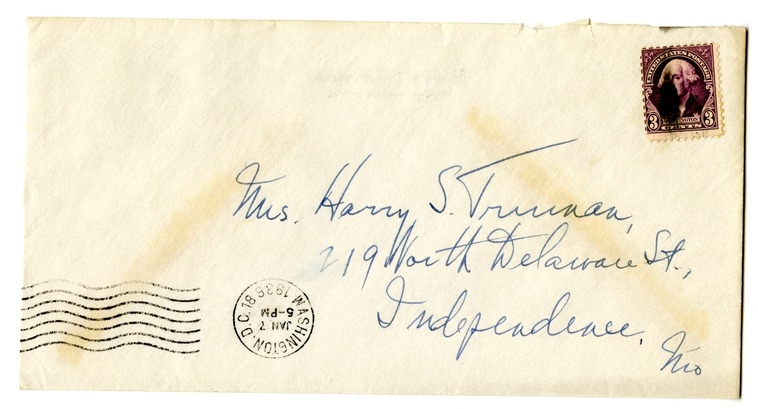 UNITED STATES POSTAGE
3 WASHINGTON 3
CENTS
Mrs. Harry S. Truman,
219 North Delaware St.,
Independence,
Mo
WASHINGTON, D.C.
JAN 7
5-PM
1936